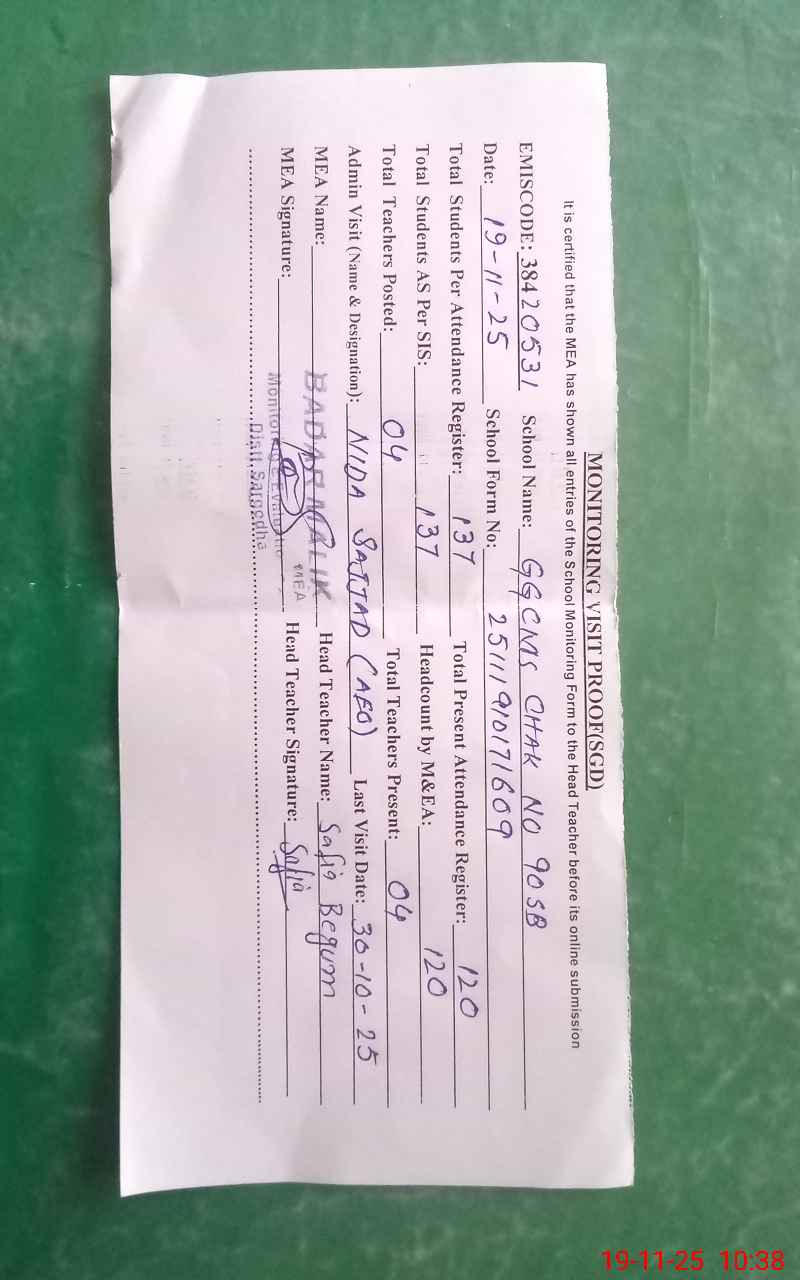 MONITORING VISIT PROOF(SGD)
It is certified that the MEA has shown all entries of the School Monitoring Form to the Head Teacher before its online submission
EMISCODE: 38420531 School Name: GGCMS CHAK NO 90 SB
Date: 19-11-25 School Form No: 25111910171609
Total Students Per Attendance Register: 137 Total Present Attendance Register: 120
Total Students AS Per SIS: 137 Headcount by M&EA: 120
Total Teachers Posted: 04 Total Teachers Present: 04
Admin Visit (Name & Designation): NIDA SAJJAD (AEO) Last Visit Date: 30-10-25
MEA Name: BADAR MALIK Head Teacher Name: Safia Begum
MEA
MEA Signature: Head Teacher Signature: Safia
Monitoring & Evaluation
Distt. Sargodha
19-11-25 10:38